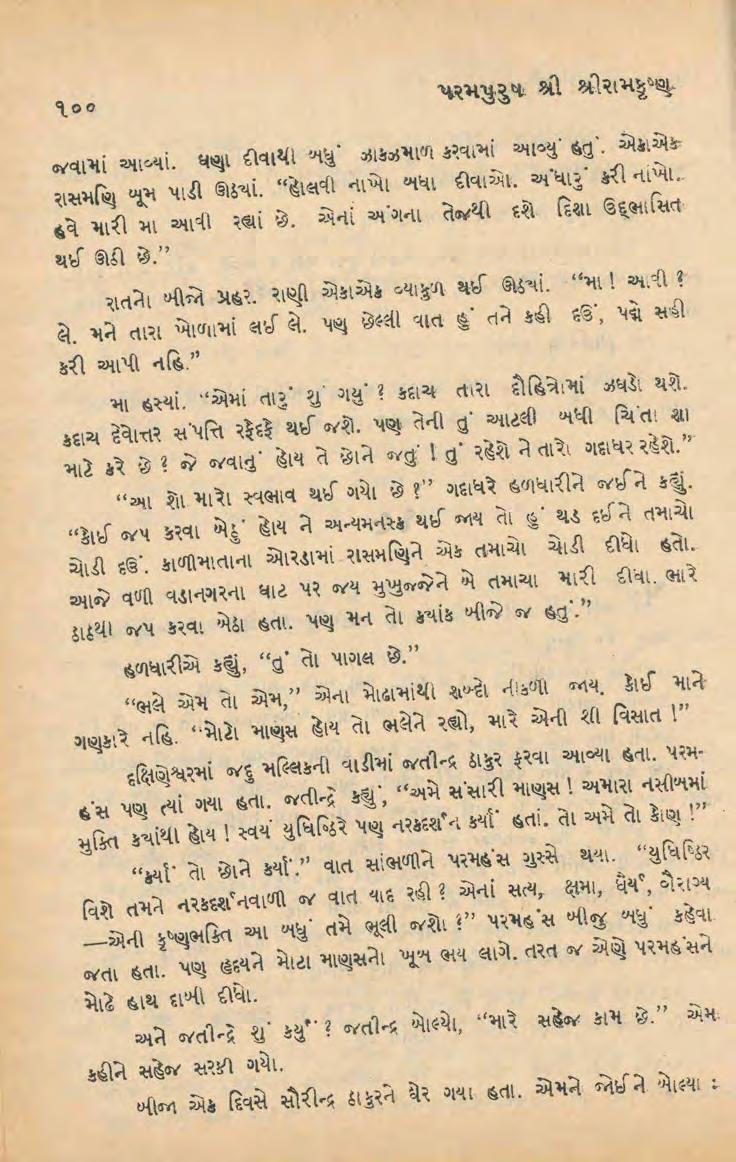 ૧૦૦
પરમપુરુષ શ્રી શ્રીરામકૃષ્ણ
જવામાં આવ્યાં. ઘણા દીવાથી બધું ઝાકઝમાળ કરવામાં આવ્યું હતું. એકાએક
રાસમણિ બૂમ પાડી ઊઠ્યાં. “હોલવી નાખો બધા દીવાઓ. અંધારું કરી નાંખો.
હવે મારી મા આવી રહ્યાં છે. એનાં અંગના તેજથી દશે દિશા ઉદ્ભાસિત
થઈ ઊઠી છે.”
રાતનો બીજો પ્રહર. રાણી એકાએક વ્યાકુળ થઈ ઊઠ્યાં. “મા ! આવી ?
લે. મને તારા ખોળામાં લઈ લે. પણ છેલ્લી વાત હું તને કહી દઉં, પદ્મે સહી
કરી આપી નહિ.”
મા હસ્યાં. “એમાં તારું શું ગયું ? કદાચ તારા દૌહિત્રોમાં ઝઘડો થશે.
કદાચ દેવોત્તર સંપત્તિ રફેદફે થઈ જશે. પણ તેની તું આટલી બધી ચિંતા શા
માટે કરે છે ? જે જવાનું હોય તે છોને જતું ! તું રહેશે ને તારો ગદાધર રહેશે.”
“આ શો મારો સ્વભાવ થઈ ગયો છે ?” ગદાધરે હળધારીને જઈને કહ્યું.
“કોઈ જપ કરવા બેઠું હોય ને અન્યમનસ્ક થઈ જાય તો હું થડ દઈને તમાચો
ચોડી દઉં. કાળીમાતાના ઓરડામાં રાસમણિને એક તમાચો ચોડી દીધો હતો.
આજે વળી વડાનગરના ઘાટ પર જય મુખુજ્જેને બે તમાચા મારી દીધા. ભારે
ઠાઠથી જપ કરવા બેઠા હતા. પણ મન તો ક્યાંક બીજે જ હતું.”
હળધારીએ કહ્યું, “તું તો પાગલ છે.”
“ભલે એમ તો એમ,” એના મોઢામાંથી શબ્દો નીકળી જાય. કોઈ માને
ગણકારે નહિ. “મોટો માણસ હોય તો ભલેને રહ્યો, મારે એની શી વિસાત !”
દક્ષિણેશ્વરમાં જદુ મલ્લિકની વાડીમાં જતીન્દ્ર ઠાકુર ફરવા આવ્યા હતા. પરમ-
હંસ પણ ત્યાં ગયા હતા. જતીન્દ્રે કહ્યું, “અમે સંસારી માણસ ! અમારા નસીબમાં
મુક્તિ ક્યાંથી હોય ! સ્વયં યુધિષ્ઠિરે પણ નરકદર્શન કર્યાં હતાં. તો અમે તો કોણ !”
“કર્યાં તો છોને કર્યાં.” વાત સાંભળીને પરમહંસ ગુસ્સે થયા. “યુધિષ્ઠિર
વિશે તમને નરકદર્શનવાળી જ વાત યાદ રહી ? એનાં સત્ય, ક્ષમા, ધૈર્ય, વૈરાગ્ય
—એની કૃષ્ણભક્તિ આ બધું તમે ભૂલી જશો ?” પરમહંસ બીજુ બધું કહેવા
જતા હતા. પણ હૃદયને મોટા માણસનો ખૂબ ભય લાગે. તરત જ એણે પરમહંસને
મોઢે હાથ દાબી દીધો.
અને જતીન્દ્રે શું કર્યું ? જતીન્દ્ર બોલ્યો, “મારે સહેજ કામ છે.” એમ
કહીને સહેજ સરકી ગયો.
બીજા એક દિવસે સૌરીન્દ્ર ઠાકુરને ઘેર ગયા હતા. એમને જોઈને બોલ્યા :